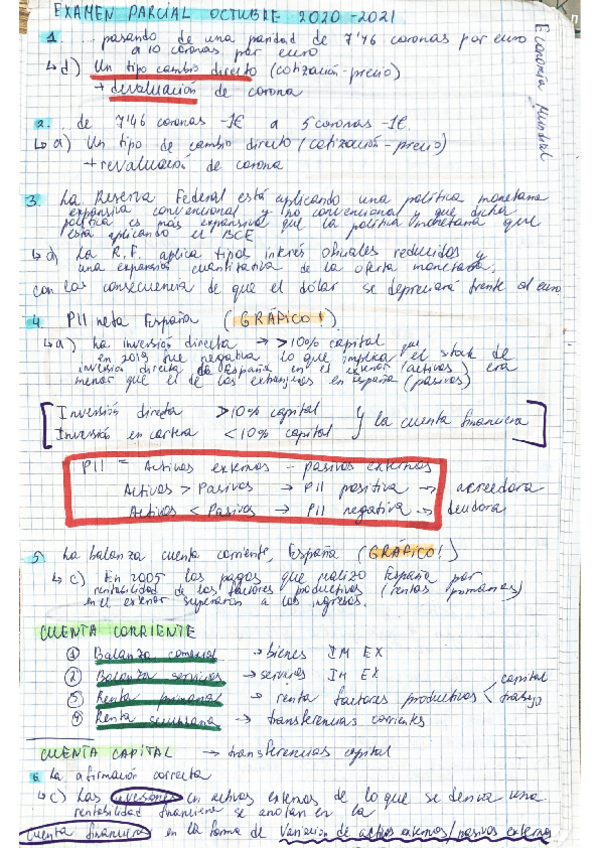 EXAMEN PARCIAL OCTUBRE 2020-2021
Economía Mundial
1. ... pasando de una paridad de 7'46 coronas por euro
a 10 coronas por euro
↳ d) Un tipo cambio directo (cotización-precio)
+ devaluación de corona
2. ... de 7'46 coronas -1€ a 5 coronas -1€.
↳ a) Un tipo de cambio directo (cotización-precio)
+ revaluación de corona
3. La Reserva Federal está aplicando una política monetaria
expansiva convencional y no convencional y que dicha
política es más expansiva que la política monetaria que
está aplicando el BCE
↳ a) La R.F. aplica tipos interés oficiales reducidos y
una expansión cuantitativa de la oferta monetaria,
con las consecuencia de que el dólar se depreciará frente al euro
4. PII neta España (GRÁFICO!)
↳ a) La inversión directa → >10% capital
en 2019 fue negativa lo que implica que el stock de
inversión directa de España en el exterior (activos) era
menor que el de los extranjeros en España (pasivos)
Inversión directa >10% capital
Inversión en cartera <10% capital } y la cuenta financiera
PII = Activos externos - pasivos externos
Activos > Pasivos → PII positiva → acreedora
Activos < Pasivos → PII negativa → deudora
5. La balanza cuenta corriente, España (GRÁFICO!)
↳ c) En 2005 los pagos que realizó España por
rentabilidad de los factores productivos (rentas primarias)
en el exterior superaron a los ingresos.
CUENTA CORRIENTE
① Balanza comercial → bienes IM EX
② Balanza servicios → servicios IM EX
③ Renta primaria → renta factores productivos < capital
trabajo
④ Renta secundaria → transferencias corrientes
CUENTA CAPITAL → transferencias capital
6. La afirmación correcta
↳ c) Las inversiones en activos externos de lo que se deriva una
rentabilidad financiera se anotan en la
cuenta financiera en la forma de Variación de activos externos/pasivos externos